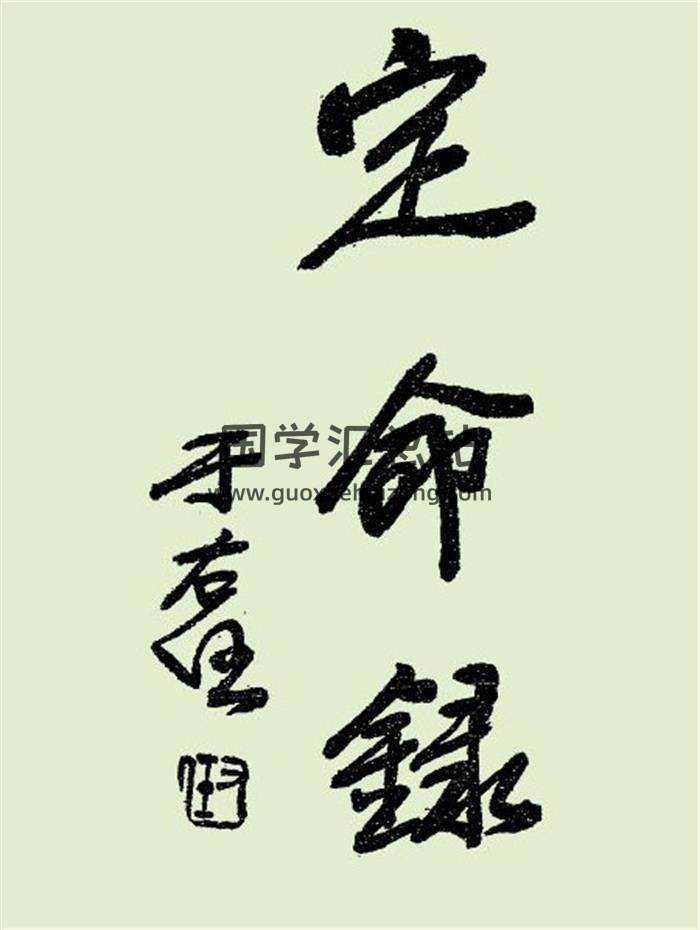 定命録
于右任
右任
国学汇
www.guoxuehuizong.com